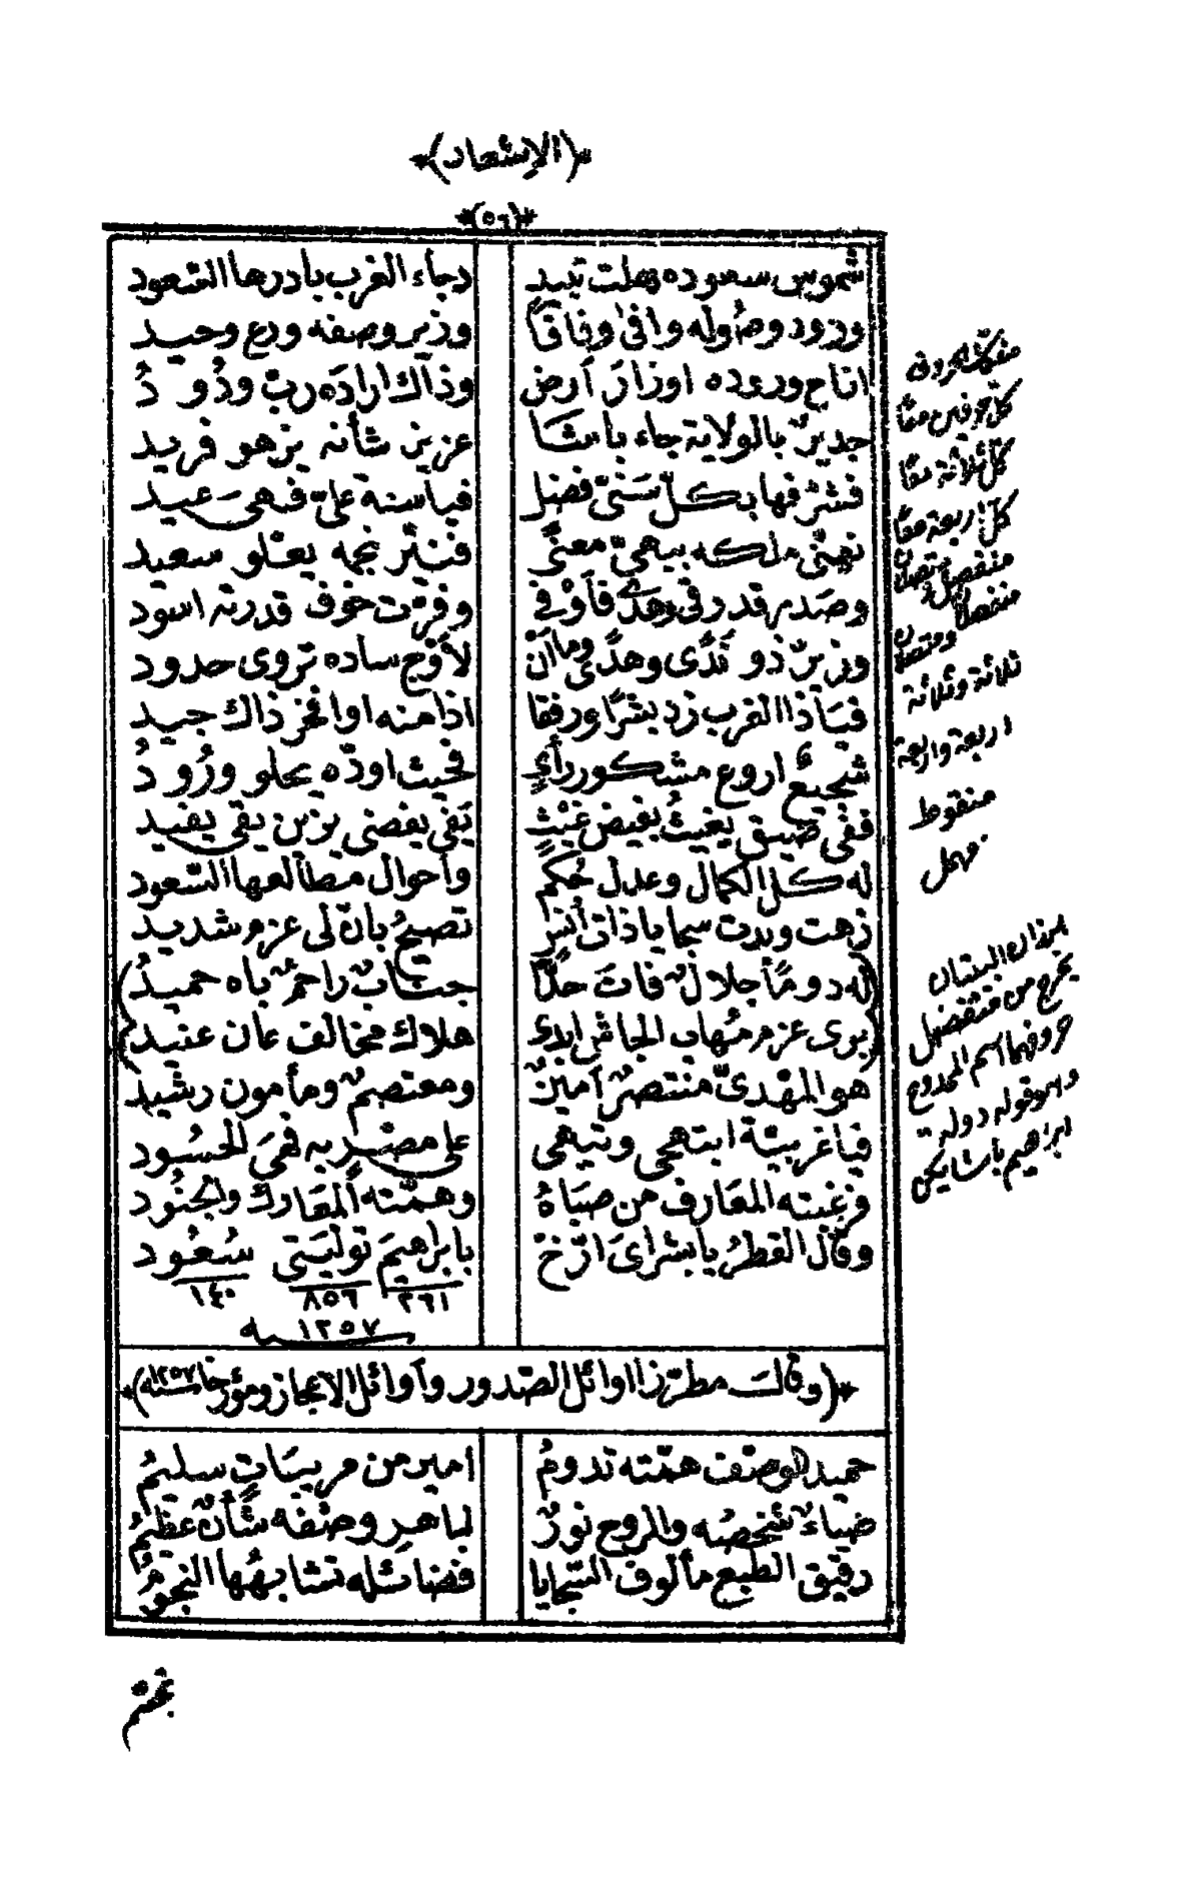 ﴿الإسعاد﴾
﴿٥٦﴾
شموس سعوده هلت تبيد دجاء الغرب بادرها السعود
ورود وصوله وافى وفاقا وزير وصفه ورع وحيد
اتاح وروده اوزار أرض وذاك اراده رب ودود
جدير بالولاية جاء باشا عزيز شأنه يزهو فريد
فشرفها بكل سنى فضل فياسنة على فهى عيد
نهنى ملكه ببهى معنى فنير نجمه يعلو سعيد
وصدر قدر رقى وهدى فأوفى وفرت خوف قدرته اسود
وزير ذو ندى وهدى وما ان لأوج ساده تروى حدود
فيا ذا الغرب زد بشرا ورفقا اذا منه اوا فخر ذاك جيد
شجيع اروع مشكور رأي فحيث اودّه يحلو ورود
ففى ضيق يغيث بفيض غيث تفى بفضى يزين يقى يفيد
له كل الكمال وعدل حكم واحوال مطالعها السعود
زهت وبدت سجايا ذات أنس تصيح بان لى عزم شديد
له دوما جلال فات حدا جناب راحم باه حميد
يرى عزم مهاب الجاش ايدى هلاك مخالف عان عنيد
هو المهدى منتصر امين ومعتصم ومأمون رشيد
فيا غربية ابتهجى وتيهى على مصر به فهى الحسود
فرغبته المعارف من صباه وهمته المعارك والجنود
وقال القطر يا بشراى ارخ بابراهيم توليتى سعود
٢٦١ ٨٥٦ ١٤٠
١٢٥٧ سنه
﴿وقالت مطرزا اوائل الصدور وأوائل الاعجاز ومؤرخا سنة ١٢٥٧﴾
حميد الوصف همته تدوم امير من مريبات سليم
ضياء شخصه والروح نور لماهر وصفه شأن عظيم
رقيق الطبع مألوف السجايا فضائله تشابهها النجوم
مفكك الحروف
كل حرفين معًا
كل ثلاثة معًا
كل اربعة معًا
منفصل ومتصلان
منفصلا ومتصلان
ثلاثة وثلاثة
اربعة واربعة
منقوط
مهمل
هذان البيتان
يخرج من منفصل
حروفهما اسم الممدوح
وهو قوله دولة
ابراهيم باشا يكن